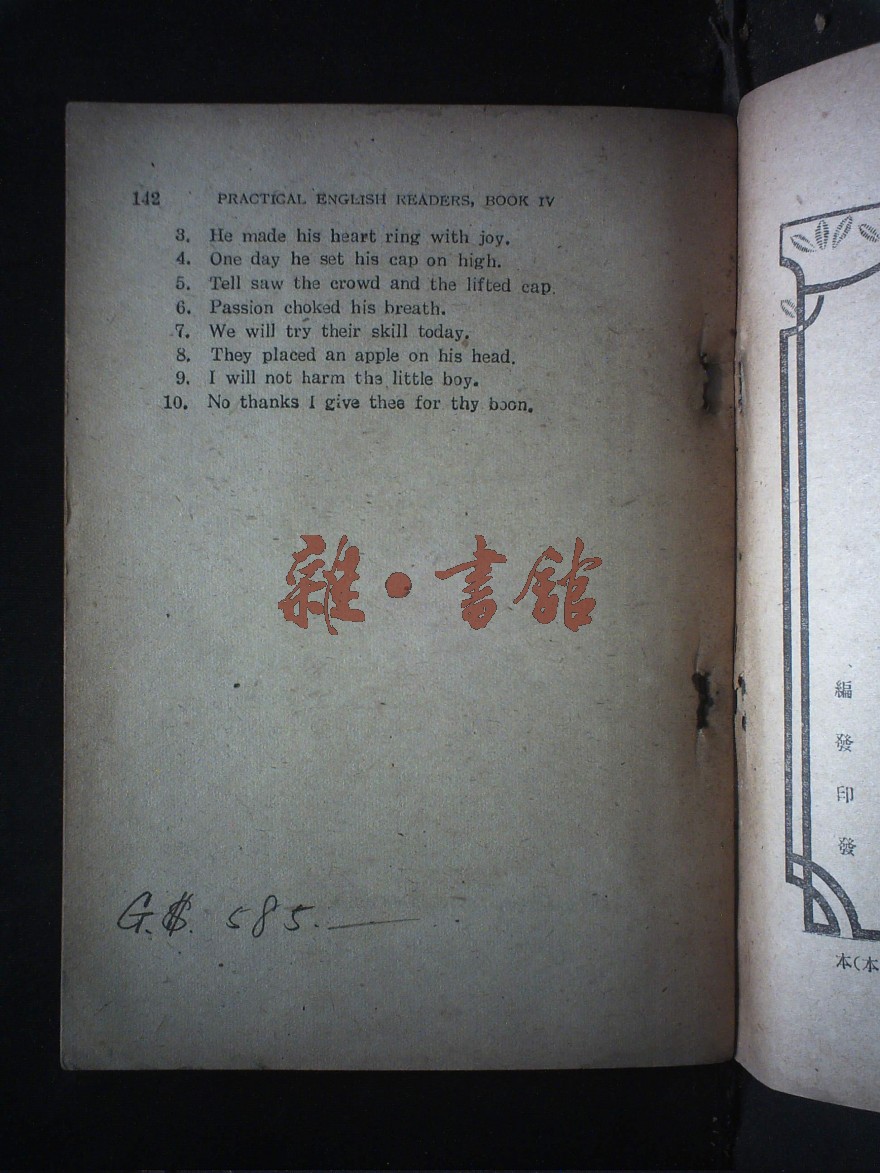 142 PRACTICAL ENGLISH READERS, BOOK IV
3. He made his heart ring with joy.
4. One day he set his cap on high.
5. Tell saw the crowd and the lifted cap.
6. Passion choked his breath.
7. We will try their skill today.
8. They placed an apple on his head.
9. I will not harm the little boy.
10. No thanks I give thee for thy boon.
雜·書館
G.$. 585.—
編
發
印
發
本(本